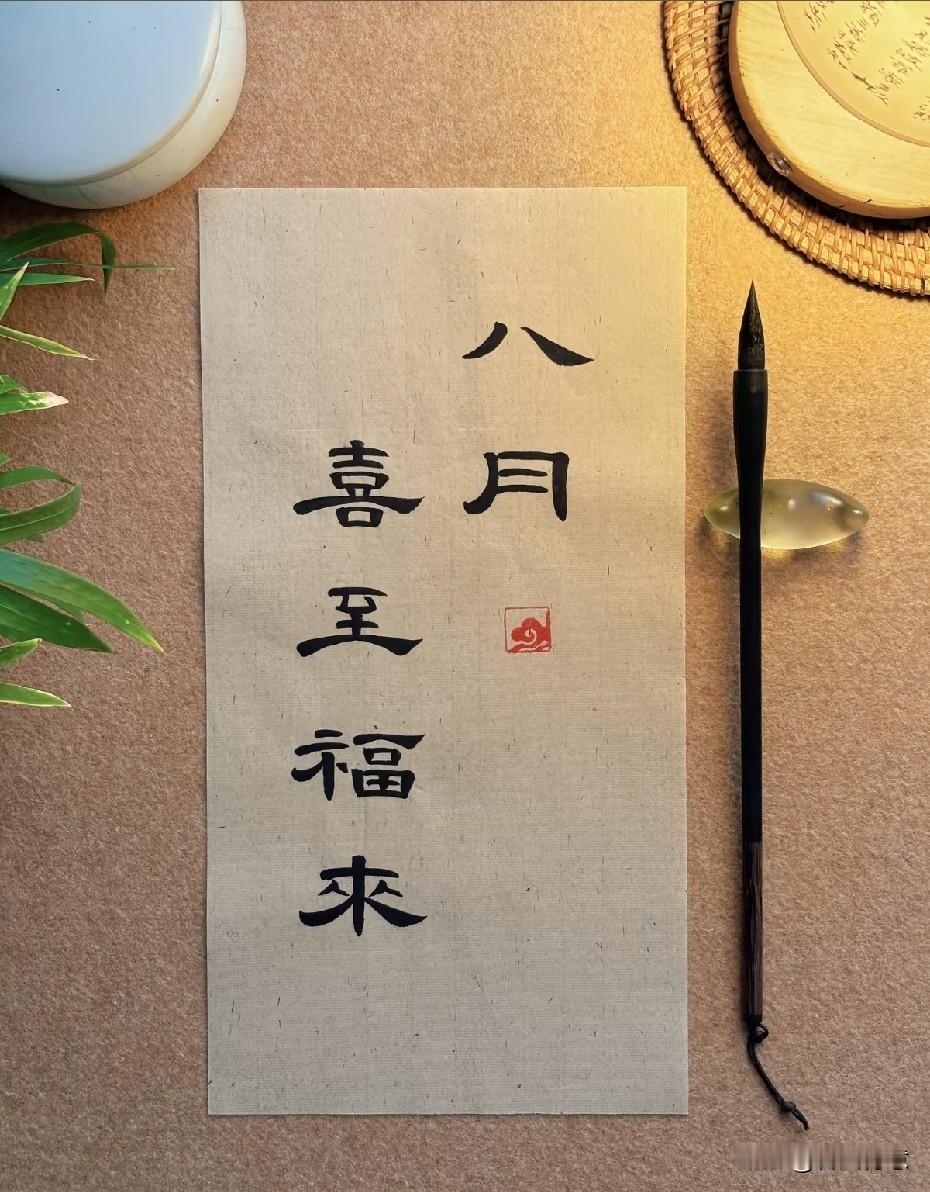 八月
喜至福來